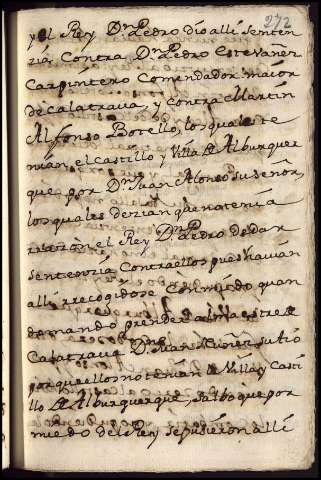 272
y el Rey Dn Pedro dio alli senten
zia, contra Dn Pedro Estevañez
Carpintero Comendador maior
de Calatrava, y contra Martin
Alfonso Botello, los quales te
nian, el castillo y Villa de Alburquer
que por Dn Juan Alonso su señor,
los quales dezian que no tenia
razon el Rey Dn Pedro de dar
sentenzia contra ellos pues havian
alli recogidose con miedo quan
do mando prender al maestre de
Calatrava Dn Juan Nuñez su tio
porque ellos no tenian la Villa y Casti
llo de Alburquerque, salbo que por
miedo del Rey se pusieron alli